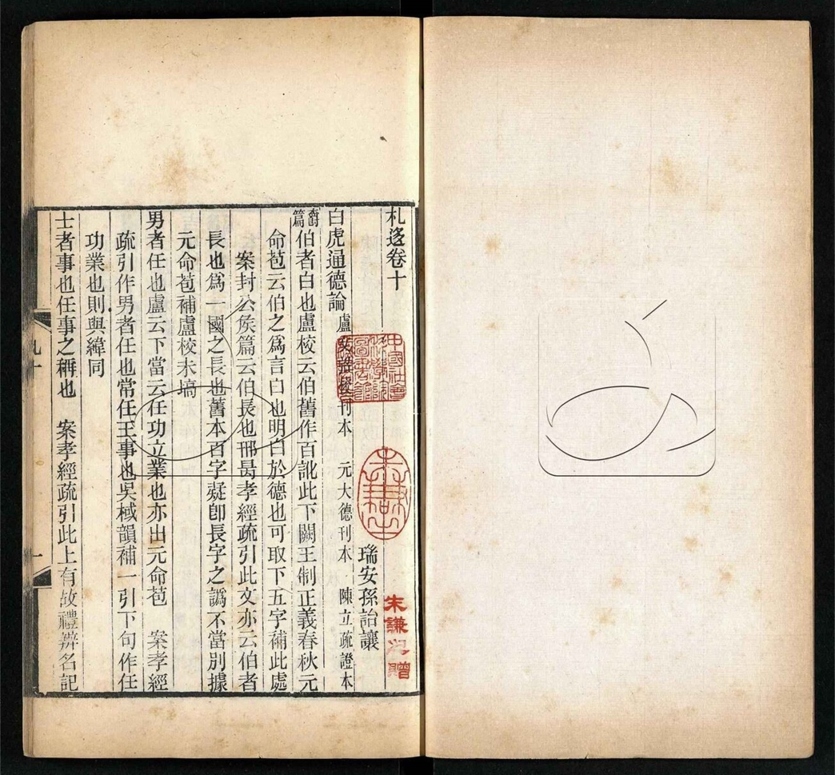 札迻卷十
瑞安孫詒讓
白虎通德論 盧文弨校刊本 元大德刊本 陳立疏證本
爵篇 伯者白也盧校云伯舊作百訛此下闕王制正義春秋元
命苞云伯之爲言白也明白於德也可取下五字補此處
案封公矦篇云伯長也邢昺孝經疏引此文亦云伯者
長也爲一國之長也舊本百字疑卽長字之譌不當別據
元命苞補盧校未塙
男者任也盧云下當云任功立業也亦出元命苞 案孝經
疏引作男者任也常任王事也吳棫韻補一引下句作任
功業也則與緯同
士者事也任事之稱也 案孝經疏引此上有故禮辨名記
札十
一
朱謙之贈